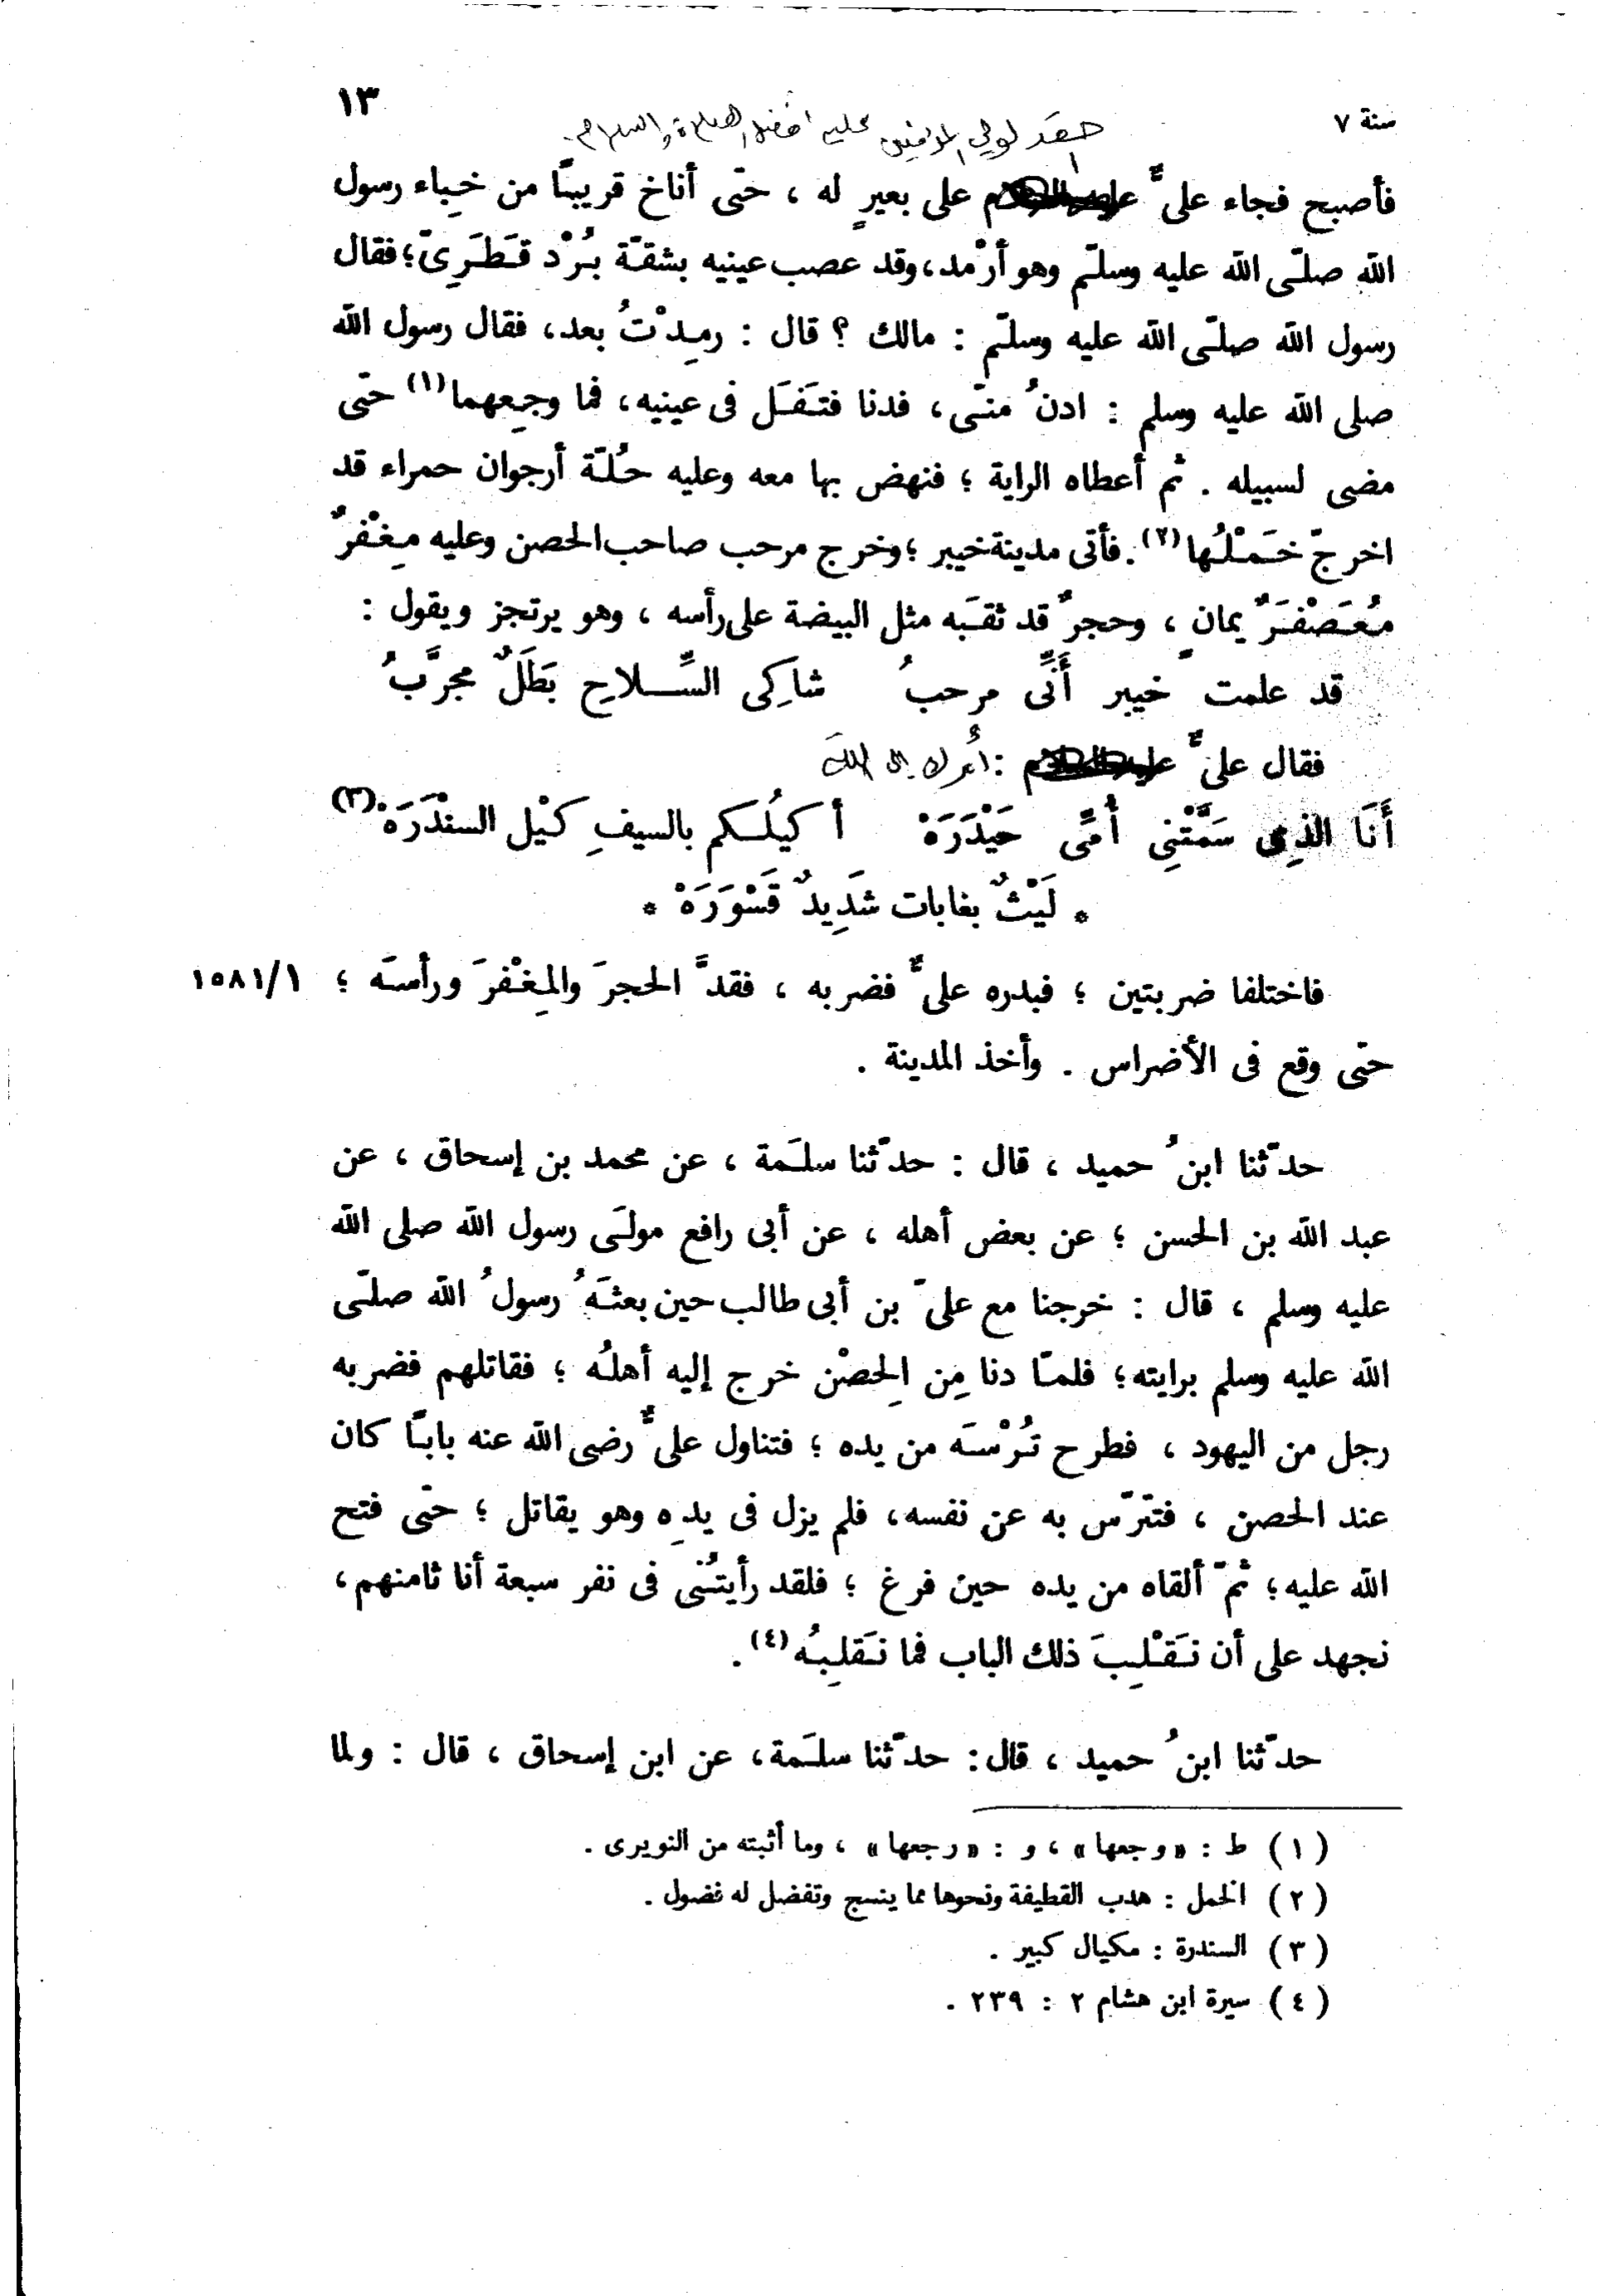 سنة ٧
١٣
حقد لولي المؤمنين عليه افضل الصلاة والسلام
فأصبح فجاء علىٌّ على بعيرٍ له ، حتّى أناخ قريبًا من خِباء رسول
الله صلّى الله عليه وسلّم وهو أرْمد، وقد عصب عينيه بشقّة بُرْد قَطَرِىّ؛ فقال
رسول الله صلّى الله عليه وسلّم : مالك ؟ قال : رمِدْتُ بعد، فقال رسول الله
صلى الله عليه وسلم : ادنُ منّى ، فدنا فتَفَل فى عينيه، فما وجِعهما(١) حتّى
مضى لسبيله . ثم أعطاه الراية ؛ فنهض بها معه وعليه حُلّة أرجوان حمراء قد
اخرجَ خَمْلُها(٢). فأتى مدينة خيبر ؛ وخرج مرحب صاحب الحصن وعليه مِغْفرٌ
مُعَصْفَرٌ يمانٍ ، وحجرٌ قد ثقَبه مثل البيضة على رأسه ، وهو يرتجز ويقول :
قد علمت خيبر أَنِّى مرحبُ شاكِى السِّلاحِ بَطَلٌ مجرَّبُ
فقال علىٌّ :
أَنَا الذِى سَمَّتْنِى أُمِّى حَيْدَرَهْ أكيلُكم بالسيفِ كَيْل السنْدَرَهْ(٣)
* لَيْثٌ بغابات شَدِيدٌ قَسْوَرَهْ *
فاختلفا ضربتين ؛ فبدره علىٌّ فضربه ، فقدَّ الحجرَ والمِغْفرَ ورأسَه ؛ ١٥٨١/١
حتّى وقع فى الأضراس . وأخذ المدينة .
حدّثنا ابنُ حميد ، قال : حدّثنا سلَمة ، عن محمد بن إسحاق ، عن
عبد الله بن الحسن ؛ عن بعض أهله ، عن أبى رافع مولَى رسول الله صلى الله
عليه وسلم ، قال : خرجنا مع علىّ بن أبى طالب حين بعثَهُ رسولُ الله صلّى
الله عليه وسلم برايته؛ فلمّا دنا مِن الِحصْن خرج إليه أهلُه ؛ فقاتلهم فضربه
رجل من اليهود ، فطرح تُرْسَه من يده ؛ فتناول علىٌّ رضى الله عنه بابًا كان
عند الحصن ، فتترّس به عن نفسه، فلم يزل فى يدِه وهو يقاتل ؛ حتّى فتح
الله عليه؛ ثمّ ألقاه من يده حين فرغ ؛ فلقد رأيتُنى فى نفر سبعة أنا ثامنهم،
نجهد على أن نَقْلِبَ ذلك الباب فما نَقلِبُه(٤).
حدّثنا ابنُ حميد ، قال : حدّثنا سلَمة، عن ابن إسحاق ، قال : ولما
(١) ط : «وجعها» ، و : «رجعها» ، وما أثبته من النويرى .
(٢) الخمل : هدب القطيفة ونحوها مما ينسج وتفضل له فضول .
(٣) السندرة : مكيال كبير .
(٤) سيرة ابن هشام ٢ : ٢٣٩ .